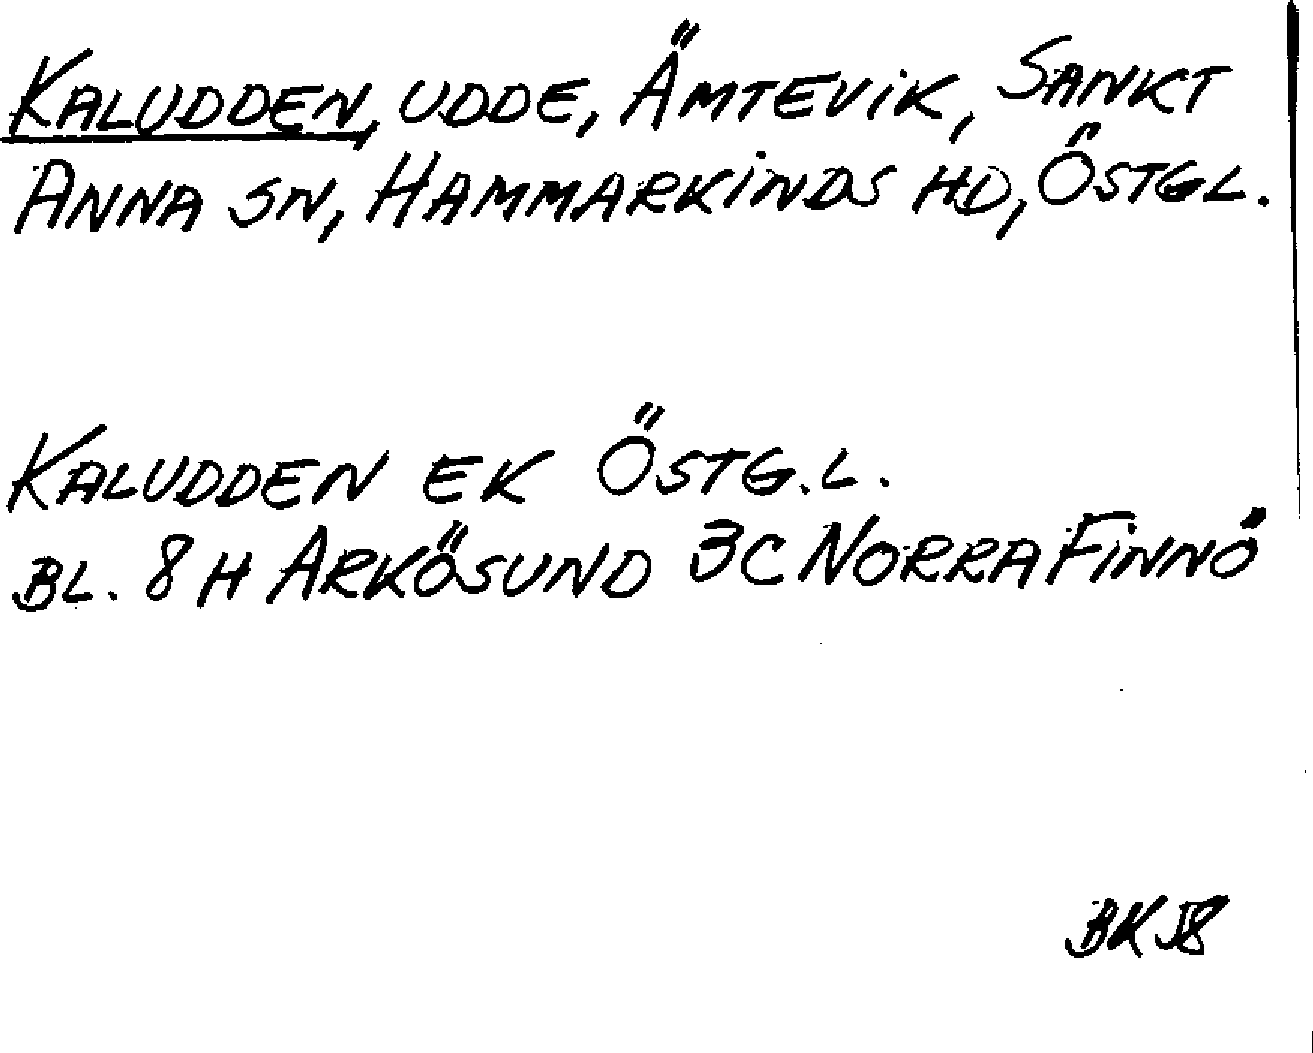 KALUDDEN, UDDE, ÄMTEVIK, SANKT
ANNA SN, HAMMARKINDS HD, ÖSTGL.
KALUDDEN EK ÖSTG.L.
BL. 8H ARKÖSUND 3C NORRA FINNÖ